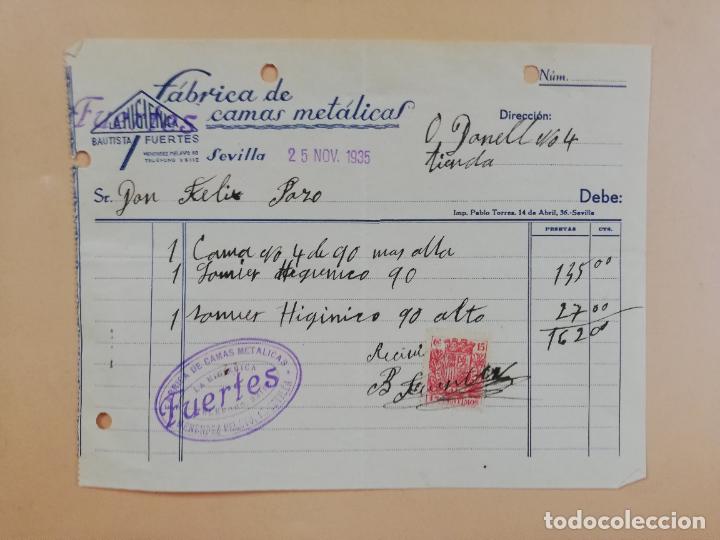 Fábrica de
camas metálicas
Fuertes
LA HIGIENICA
BAUTISTA FUERTES
MENENDEZ PELAYO
TELÉFONO
Sevilla 25 NOV. 1935
Núm.
Dirección:
O Donell No 4
tienda
Sr. Don Felix Pozo Debe:
Imp. Pablo Torres, 14 de Abril, 36.-Sevilla
PESETAS CTS.
1 Cama No 4 de 90 mas alta
1 Somier Higienico 90 135 00
1 Somier Higinico 90 alto 27 00
162 00
Recivi
B
15
FABRICA DE CAMAS METALICAS
LA HIGIENICA
Fuertes
MENENDEZ PELAYO
SEVILLA
todocoleccion
todocoleccion.net